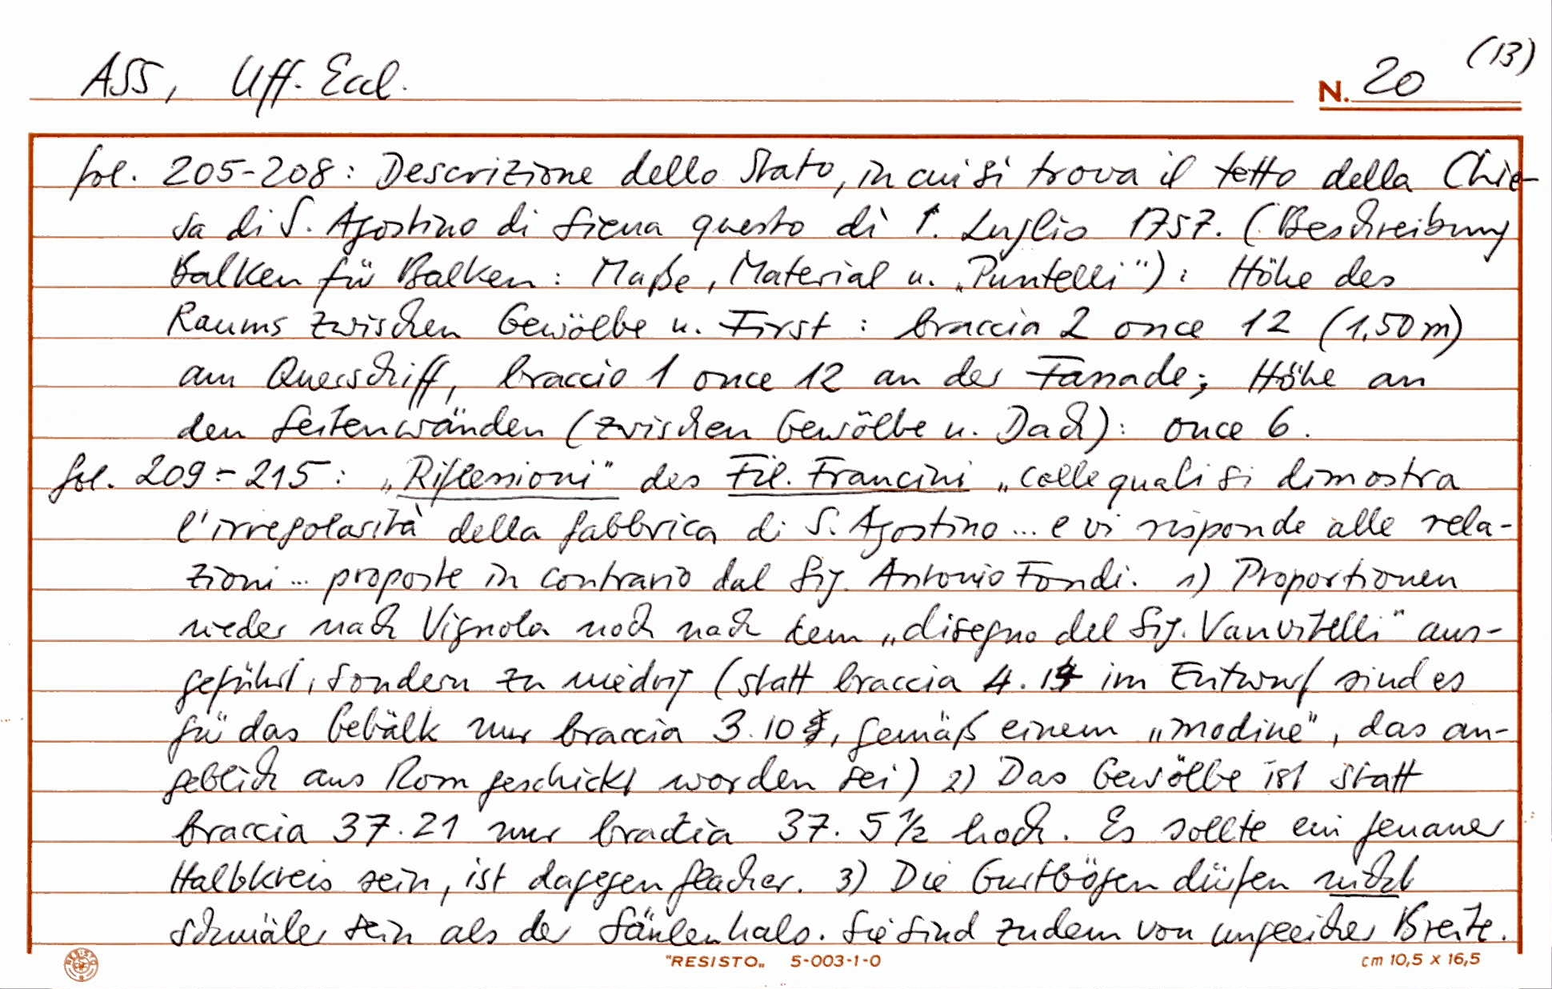 (13)
ASS, Uff. Eccl.
N. 20
fol. 205-208: Descrizione dello Stato, in cui si trova il tetto della Chie-
sa di S. Agostino di Siena questo dì 1. Luglio 1757. (Beschreibung
Balken für Balken: Maße, Material u. „Puntelli"): Höhe des
Raums zwischen Gewölbe u. First: braccia 2 once 12 (1,50 m)
am Querschiff, braccio 1 once 12 an der Fassade; Höhe an
den Seitenwänden (zwischen Gewölbe u. Dach): once 6.
fol. 209-215: „Riflessioni" des Fil. Francini „colle quali si dimostra
l'irregolarità della fabbrica di S. Agostino... e vi risponde alle rela-
zioni... proposte in contrario dal Sig. Antonio Fondi. 1) Proportionen
weder nach Vignola noch nach dem „disegno del Sig. Vanvitelli" aus-
geführt, sondern zu niedrig (statt braccia 4. im Entwurf sind es
für das Gebälk nur braccia 3.10, gemäß einem „modine", das an-
geblich aus Rom geschickt worden sei) 2) Das Gewölbe ist statt
braccia 37.21 nur braccia 37. 5 1/2 hoch. Es sollte ein genauer
Halbkreis sein, ist dagegen flacher. 3) Die Gurtbögen dürfen nicht
schmäler sein als der Säulenhals. Sie sind zudem von ungleicher Breite.
RESISTO
"RESISTO„ 5-003-1-0
cm 10,5 x 16,5